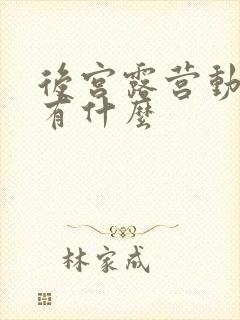 後宮露营動
有什麼
林家成